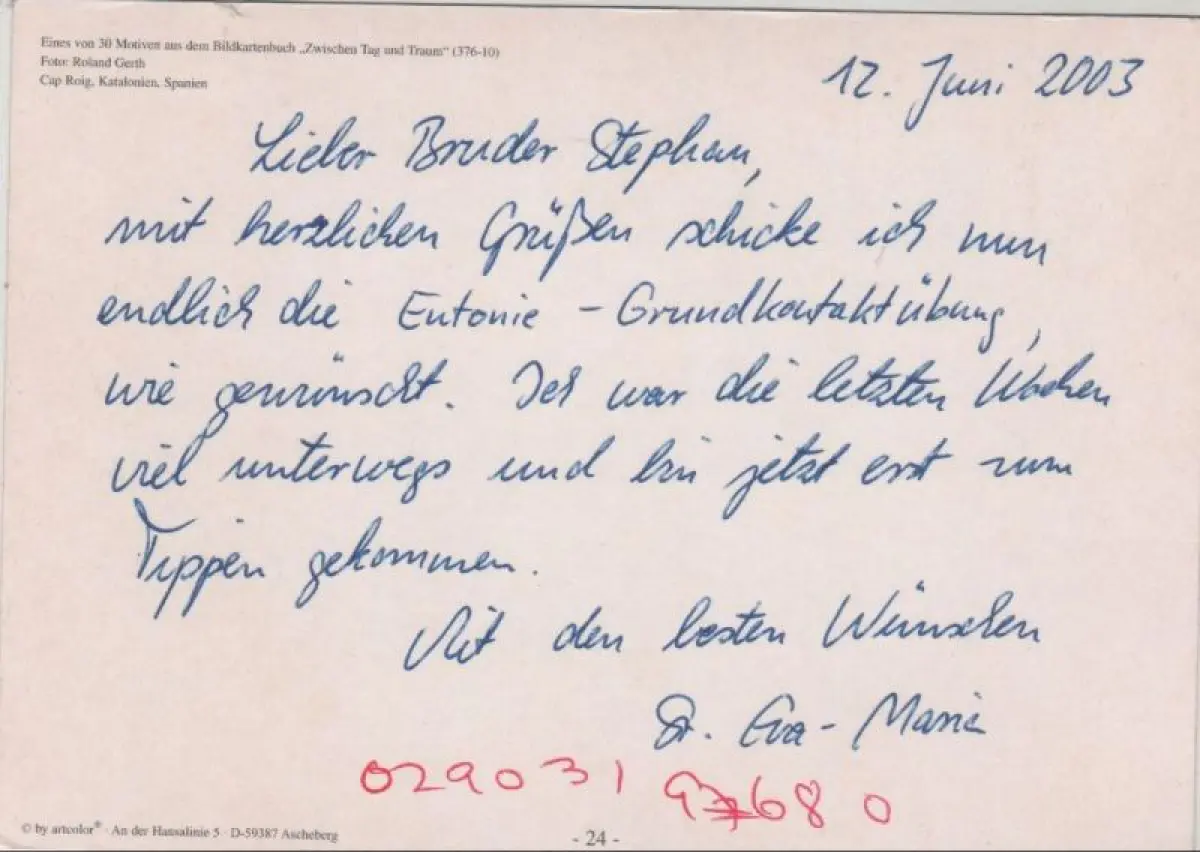 Eines von 30 Motiven aus dem Bildkartenbuch „Zwischen Tag und Traum“ (376-10)
Foto: Roland Gerth
Cap Roig, Katalonien, Spanien
12. Juni 2003
Lieber Bruder Stephan,
mit herzlichen Grüßen schicke ich nun
endlich die Eutonie-Grundkontaktübung,
wie gewünscht. Ich war die letzten Wochen
viel unterwegs und bin jetzt erst zum
Tippen gekommen.
Mit den besten Wünschen
Sr. Eva-Maria
029031 97680
© by artcolor® · An der Hansalinie 5 · D-59387 Ascheberg
- 24 -